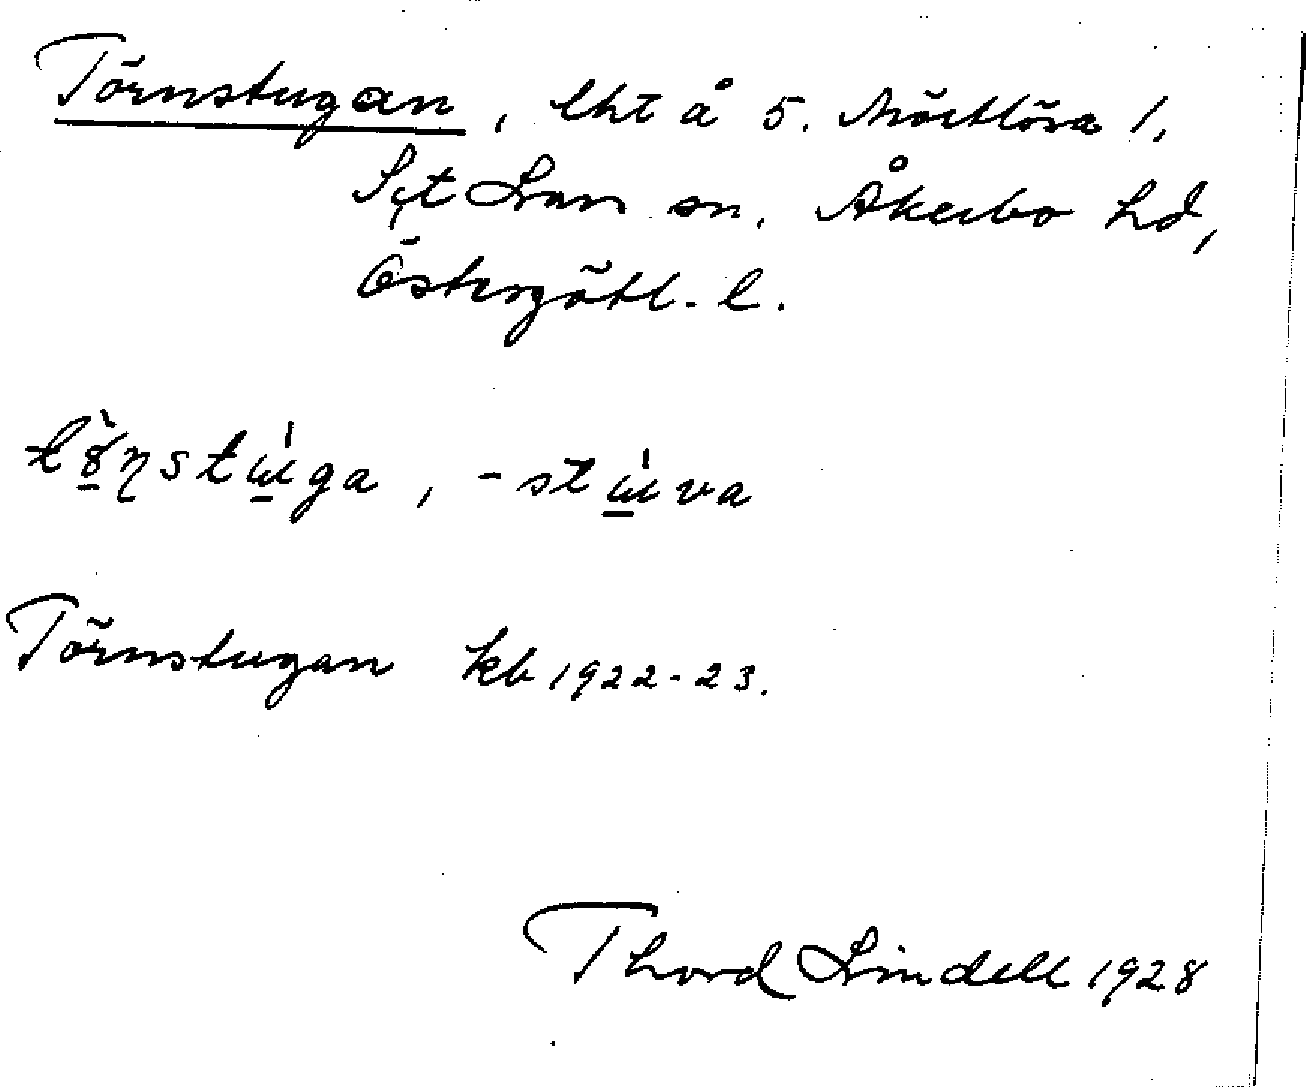 Törnstugan, lht å 5. Mörtlösa 1,
S:t Lars sn. Åkerbo hd,
Östergötl. l.
-stɯ́va
Törnstugan kb 1922-23.
Thord Lindell 1928